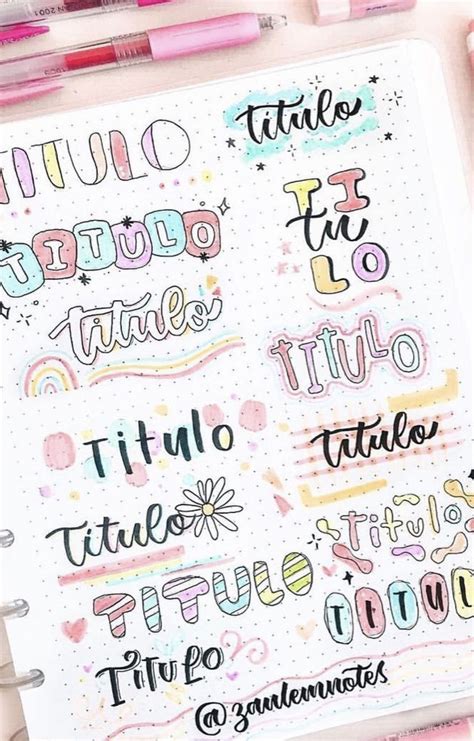 TITULO
titulo
TITULO
TI
tu
LO
titulo
TITULO
Titulo
titulo
Titulo
Titulo
TITULO
TITUL
TITULO
@zaulemnotes